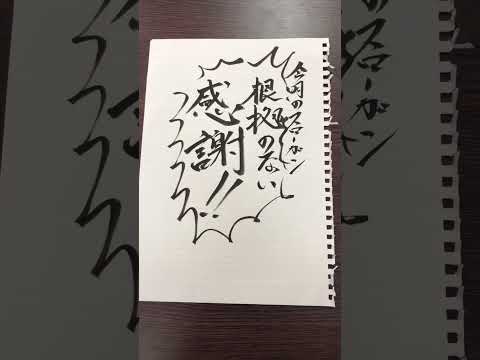 今月のスローガン
根拠のない
感謝!!